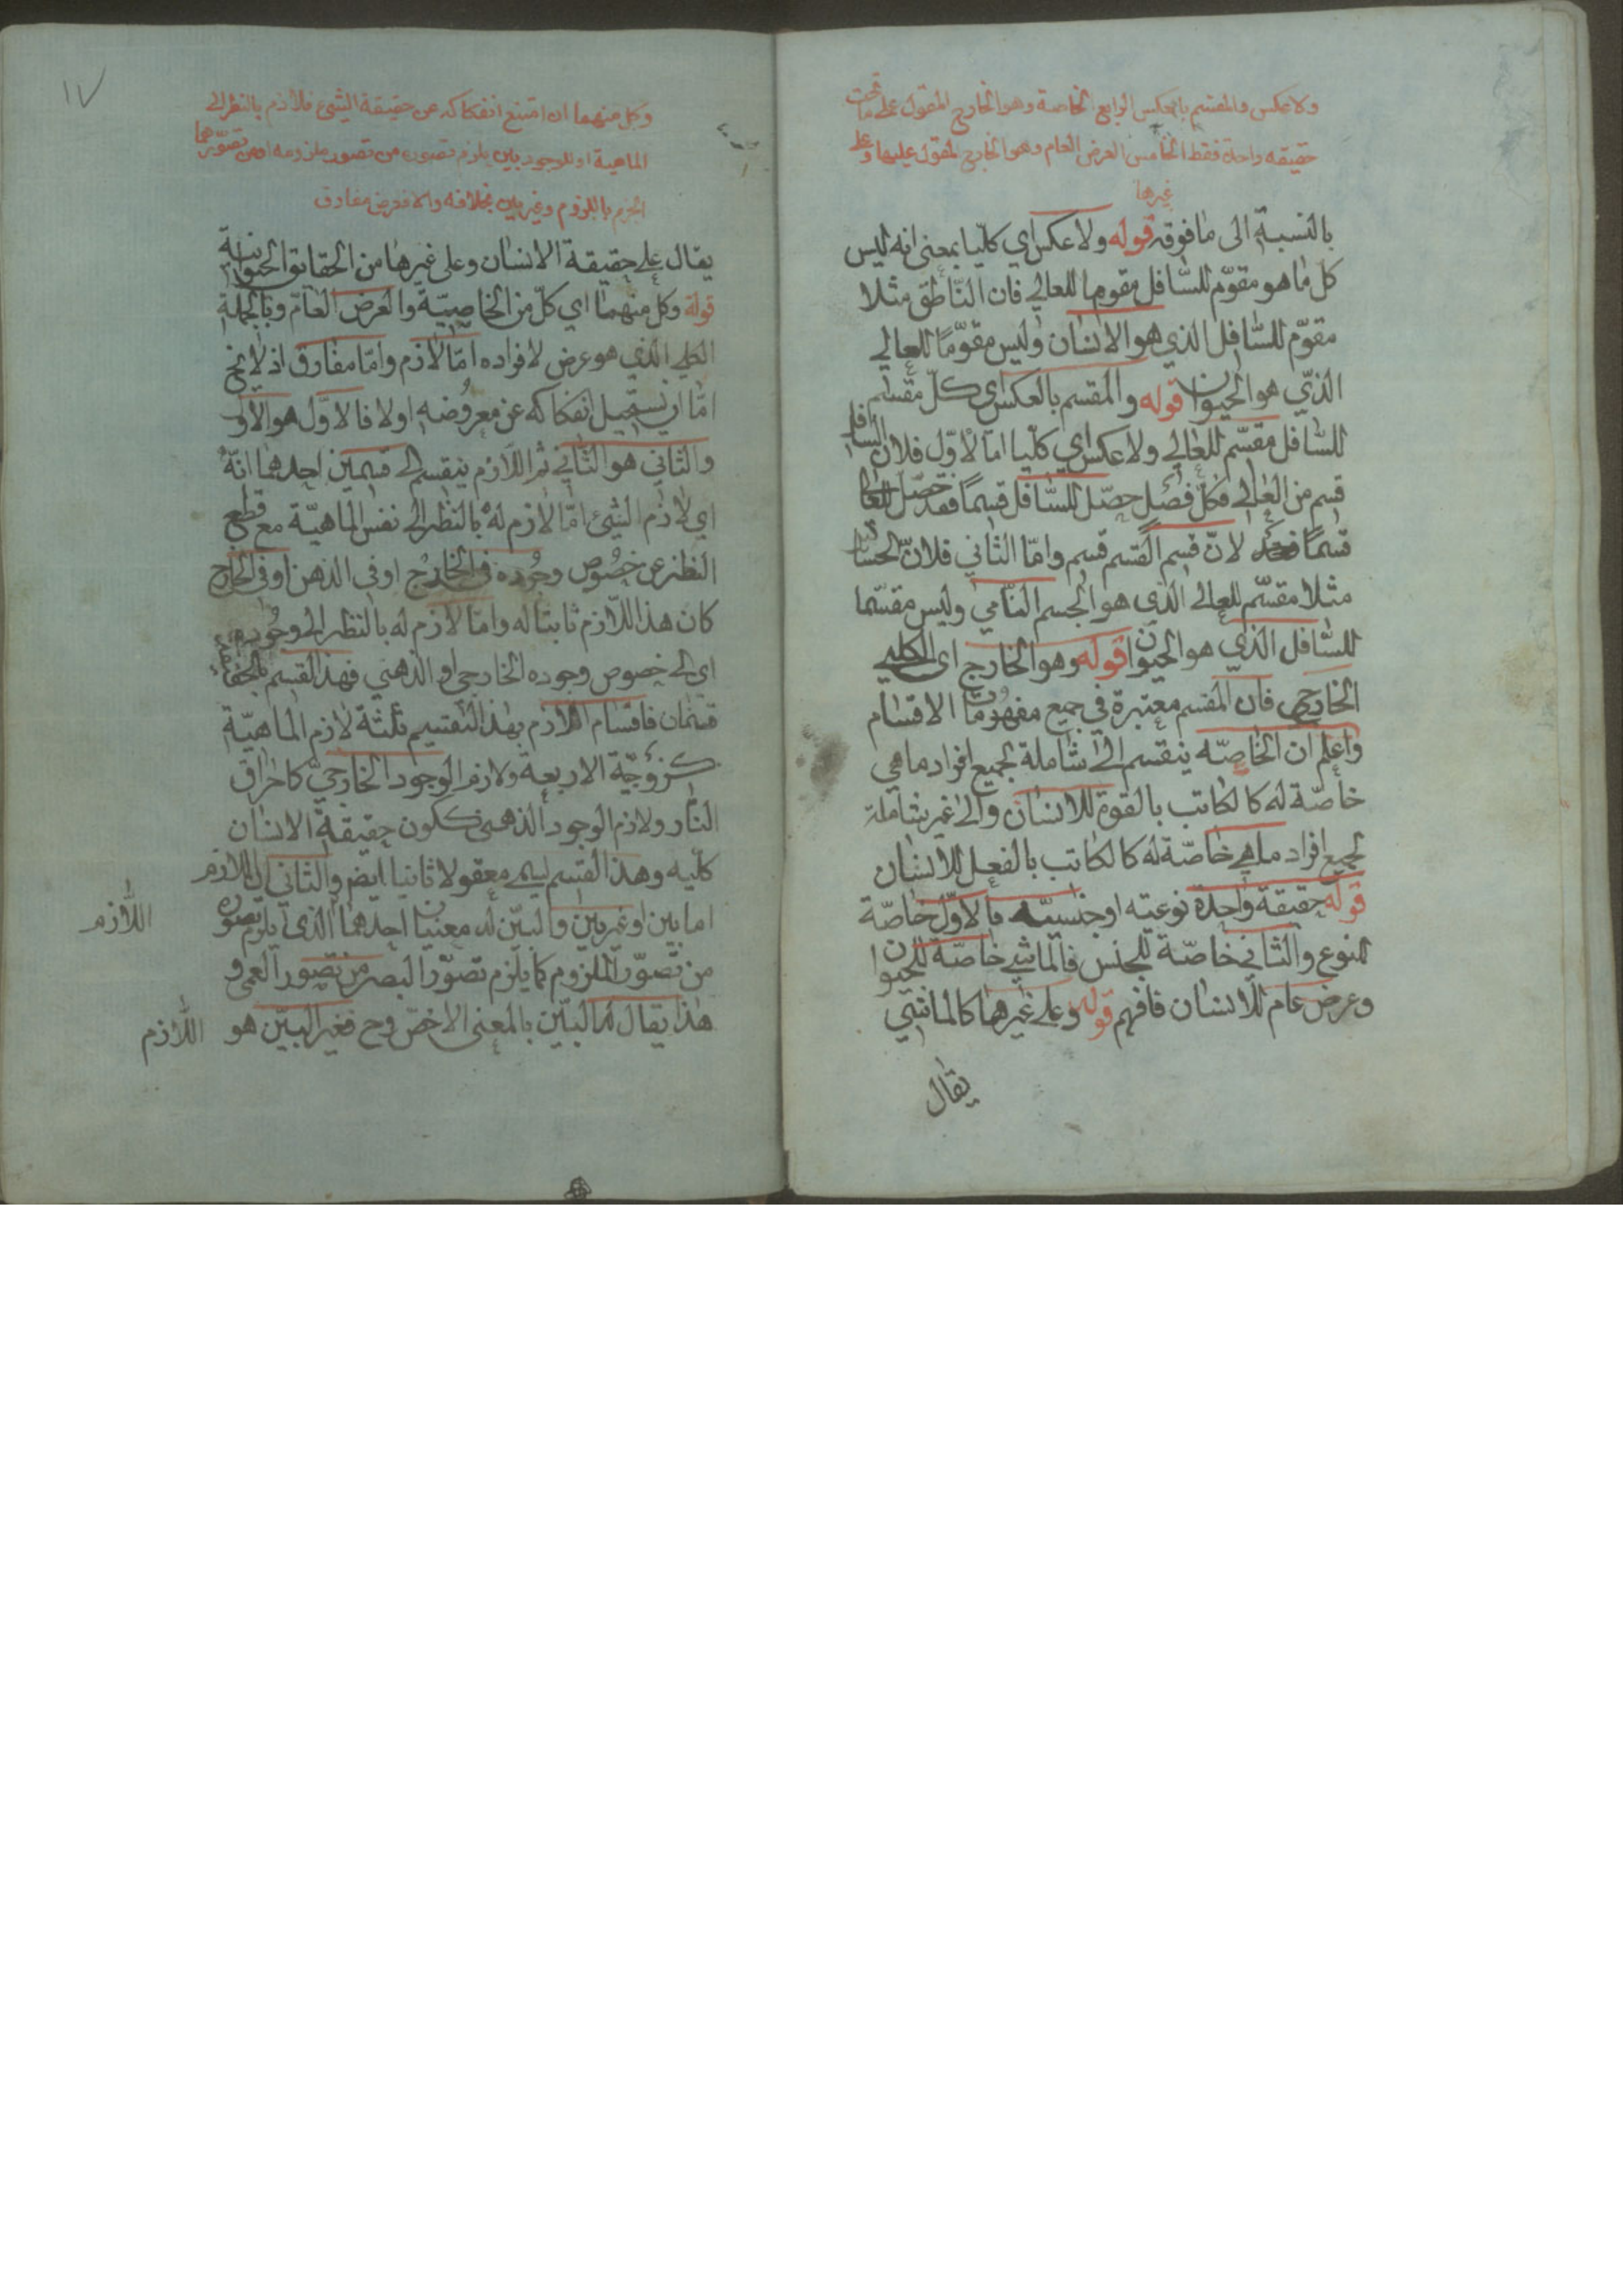 ولا عكس والمقسم بالعكس الرابع الخاصة وهو الخارج المقول على ما تحت
حقيقه واحدة فقط الخامس العرض العام وهو الخارج المقول عليها وعلى
غيرها
بالنسبة الى ما فوقه قوله ولا عكس اي كليا بمعنى انه ليس
كل ما هو مقوّم للسّافل مقوما للعالي فان النّاطق مثلا
مقوّم للسّافل الذي هو الانسان وليس مقوّمًا للعالي
الذّي هو الحيوان قوله والمقسم بالعكس اي كلّ مقسّم
للسّافل مقسّم للعالي ولا عكس اي كليا امّا الاوّل فلان السافل
قسم من العالي فكلّ فصل حصّل للسّافل قسمًا فقد حصّل العالي
قسمًا لانّ قسم القسم قسم وامّا الثاني فلانّ الحسّاس
مثلا مقسّم للعالي الّذي هو الجسم النّامي وليس مقسّما
للسّافل الذي هو الحيوان قوله وهو الخارج اى الكلي
الخارجي فان المقسم معتبرة في جميع مفهومات الاقسام
واعلم ان الخاصّه ينقسم الى شاملة لجميع افراد ما هي
خاصّة له كالكاتب بالقوة للانسان والى غير شاملة
لجميع افراد ما هي خاصّة له كالكاتب بالفعل للانسان
قوله حقيقة واحدة نوعيته او جنسيته فالاوّل خاصّة
للنوع والثاني خاصّة للجنس فالماشي خاصّة للحيوان
وعرض عام للانسان فافهم قوله وعلى غيرها كالماشي
يقال
١٧
وكل منهما ان امتنع انفكاكه عن حقيقة الشئ فلازم بالنظر الى
الماهية او للوجود بين يلزم تصوره من تصور ملزومه او من تصوّرهما
الجزم باللزوم وغير بين بخلافه والا فعرض مفارق
يقال على حقيقة الانسان وعلى غيرها من الحقايق الحيوانية
قوله وكل منهما اي كلّ من الخاصيّة والعرض العامّ وبالجملة
الكلي الّذي هو عرض لافراده امّا لازم وامّا مفارق اذ لا يخ
امّا ان يستحيل انفكاكه عن معروضه اولا فالاوّل هو الاوّل
والثاني هو الثّاني ثم اللّازم ينقسم الى قسمين احدهما انّه
اي لازم الشئ امّا لازم له بالنظر الى نفس الماهيّة مع قطع
النظر عن خصوص وجوده في الخارج او في الذهن او في الخارج
كان هذا اللّازم ثابتا له وامّا لازم له بالنظر الى وجوده
اي الى خصوص وجوده الخارجي او الذهني فهذا القسم بالحقيقة
قسمان فاقسام اللّازم بهذا التّقسيم ثلثة لازم الماهيّة
كزوجيّة الاربعة ولازم الوجود الخارجيّ كاحراق
النار ولازم الوجود الذهنى ككون حقيقة الانسان
كلّيه وهذا القسم يسمى معقولا ثانيا ايض والثاني ان اللازم
اما بين او غير بين والبيّن له معنيان احدهما الّذى يلزم تصوره
من تصوّر الملزوم كما يلزم تصوّر البصر من تصور العمى و
هذا يقال له البيّن بالمعنى الاخصّ وح فغير البيّن هو
اللّازم
اللّازم